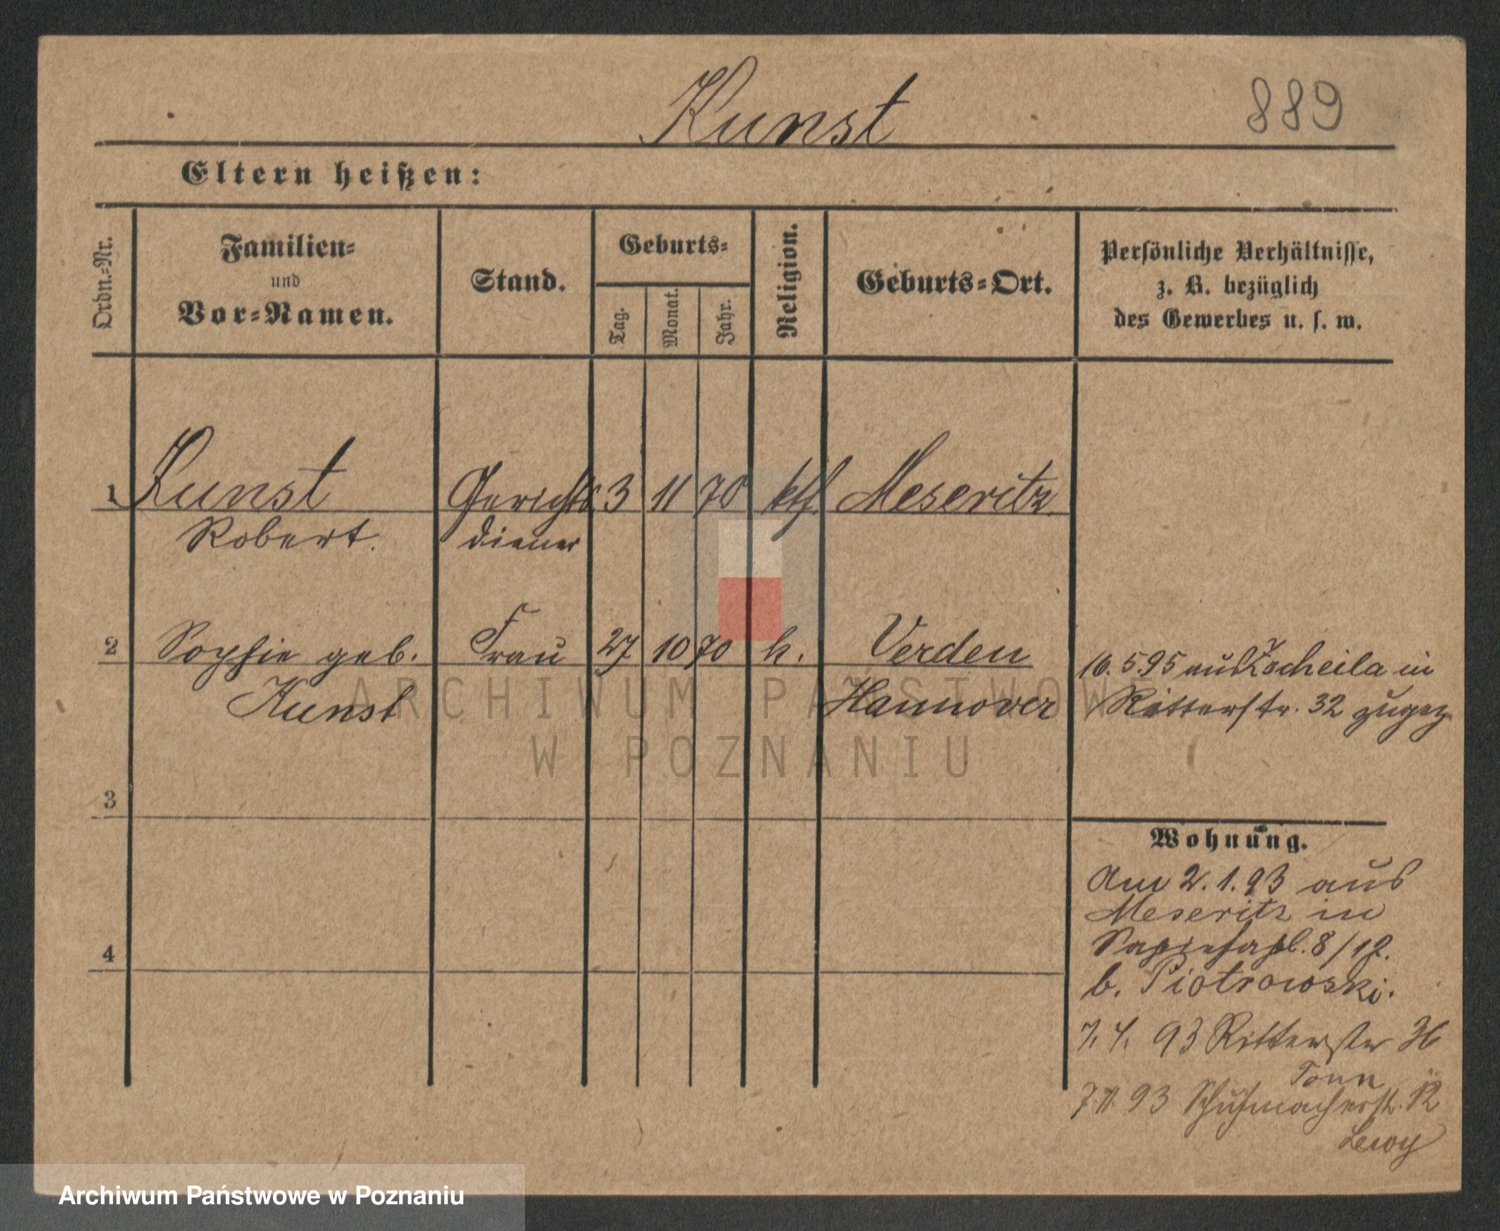 Kunst 889
Eltern heißen:
Ordn.-Nr.
Familien-
und
Vor-Namen.
Stand.
Geburts-
Tag.
Monat.
Jahr.
Religion.
Geburts-Ort.
Persönliche Verhältnisse,
z. B. bezüglich
des Gewerbes u. s. w.
1 Kunst Gerichts 3 11 70 kth Meseritz
Robert. diener
2 Sophie geb. Frau 27 10 70 k. Verden
Kunst Hannover
16.5.95 aus in
Ritterstr. 32 zugez
3
Wohnung.
Am 2.1.93 aus
Meseritz in
Sapiehapl. 8/
b. Piotrowski.
4
93 Ritterstr 36
Tonn
93 Schuhmacherstr. 12
Lewy
ARCHIWUM PAŃSTWOWE
W POZNANIU
Archiwum Państwowe w Poznaniu